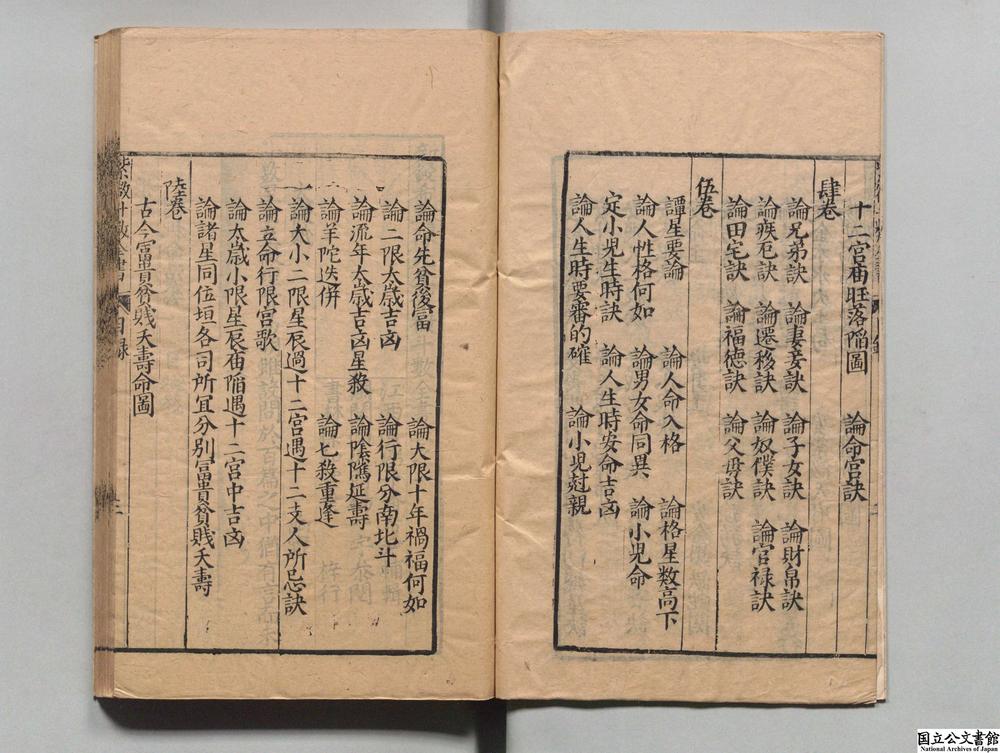 十二宮庙旺落陷圖　論命宮訣
肆卷
論兄弟訣　論妻妾訣　論子女訣　論財帛訣
論疾厄訣　論遷移訣　論奴僕訣　論官禄訣
論田宅訣　論福德訣　論父母訣
伍卷
譚星要論　論人命入格　論格星数高下
論人性格何如　論男女命同異　論小児命
定小児生時訣　論人生時安命吉凶
論人生時要審的確　論小児尅親
論命先貧後冨　論大限十年禍福何如
論二限太歲吉凶　論行限分南北斗
論流年太歲吉凶星殺　論陰隲延壽
論羊陀迭併　論七殺重逢
論大小二限星辰過十二宮遇十二支人所忌訣
論立命行限宮歌
論太歲小限星辰庙陷遇十二宮中吉凶
論諸星同位垣各司所冝分別冨貴貧賤夭壽
陸卷
古今冨貴貧賤夭壽命圖
紫微斗数全書　目録
国立公文書館
National Archives of Japan